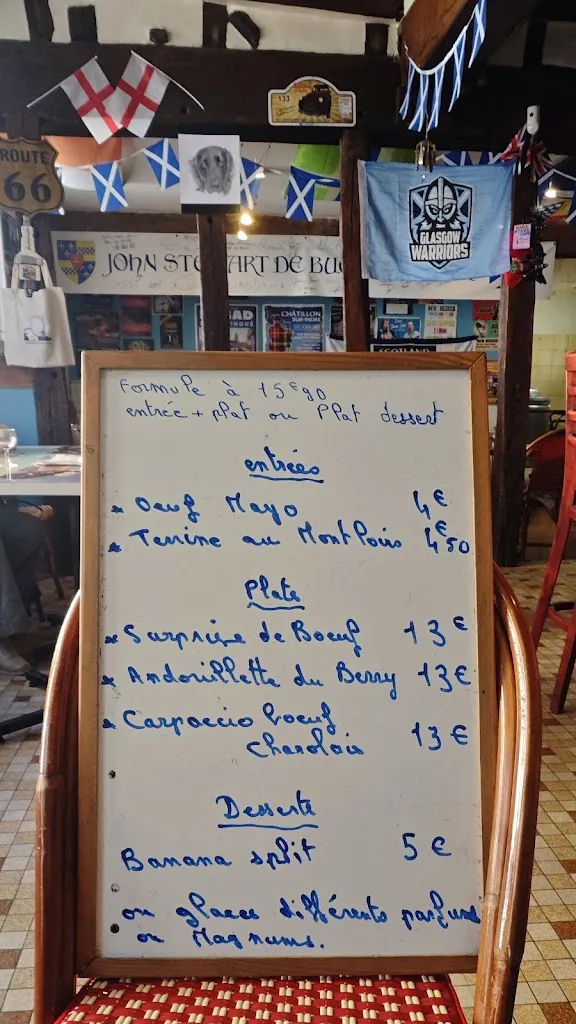 133
ROUTE
66
GLASGOW
WARRIORS
JOHN STEWART DE BU
CHÂTILLON
SUR-INDRE
SCOTLAND
Formule à 15€90
entrée + plat ou Plat dessert
entrées
* Oeuf Mayo 4€
* Terrine au Montlouis 4€50
Plats
* Surprise de Boeuf 13€
* Andouillette du Berry 13€
* Carpaccio boeuf
charolais 13€
Desserts
Banana split 5€
ou glaces différents parfums
ou Magnums.